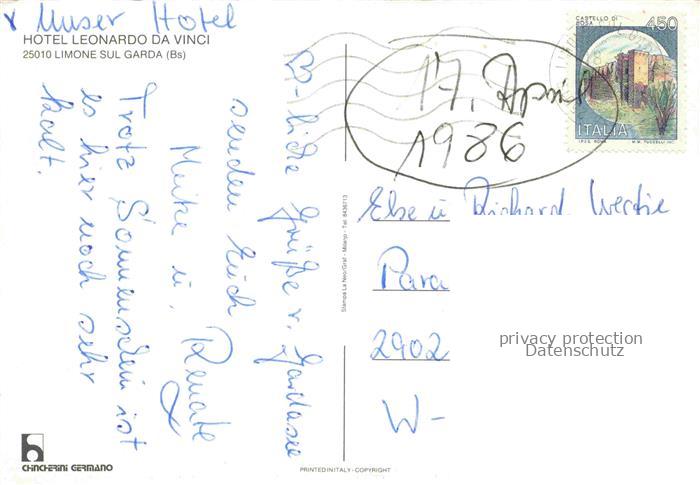 x Unser Hotel
HOTEL LEONARDO DA VINCI
25010 LIMONE SUL GARDA (Bs)
liebe Grüße v. Gardasee
senden Euch
Meike u. Renate
Trotz Sonnenschein ist
es hier noch sehr
kalt.
CHINCHERINI GERMANO
Stampa La Neo/Graf - Milano - Tel. 8436713
PRINTED IN ITALY - COPYRIGHT
17. April
1986
CASTELLO DI
ROSA
450
ITALIA
I.P.Z.S. ROMA M.M. TUCCELLI INC.
Else u Richard
Para
2902
W-
privacy protection
Datenschutz